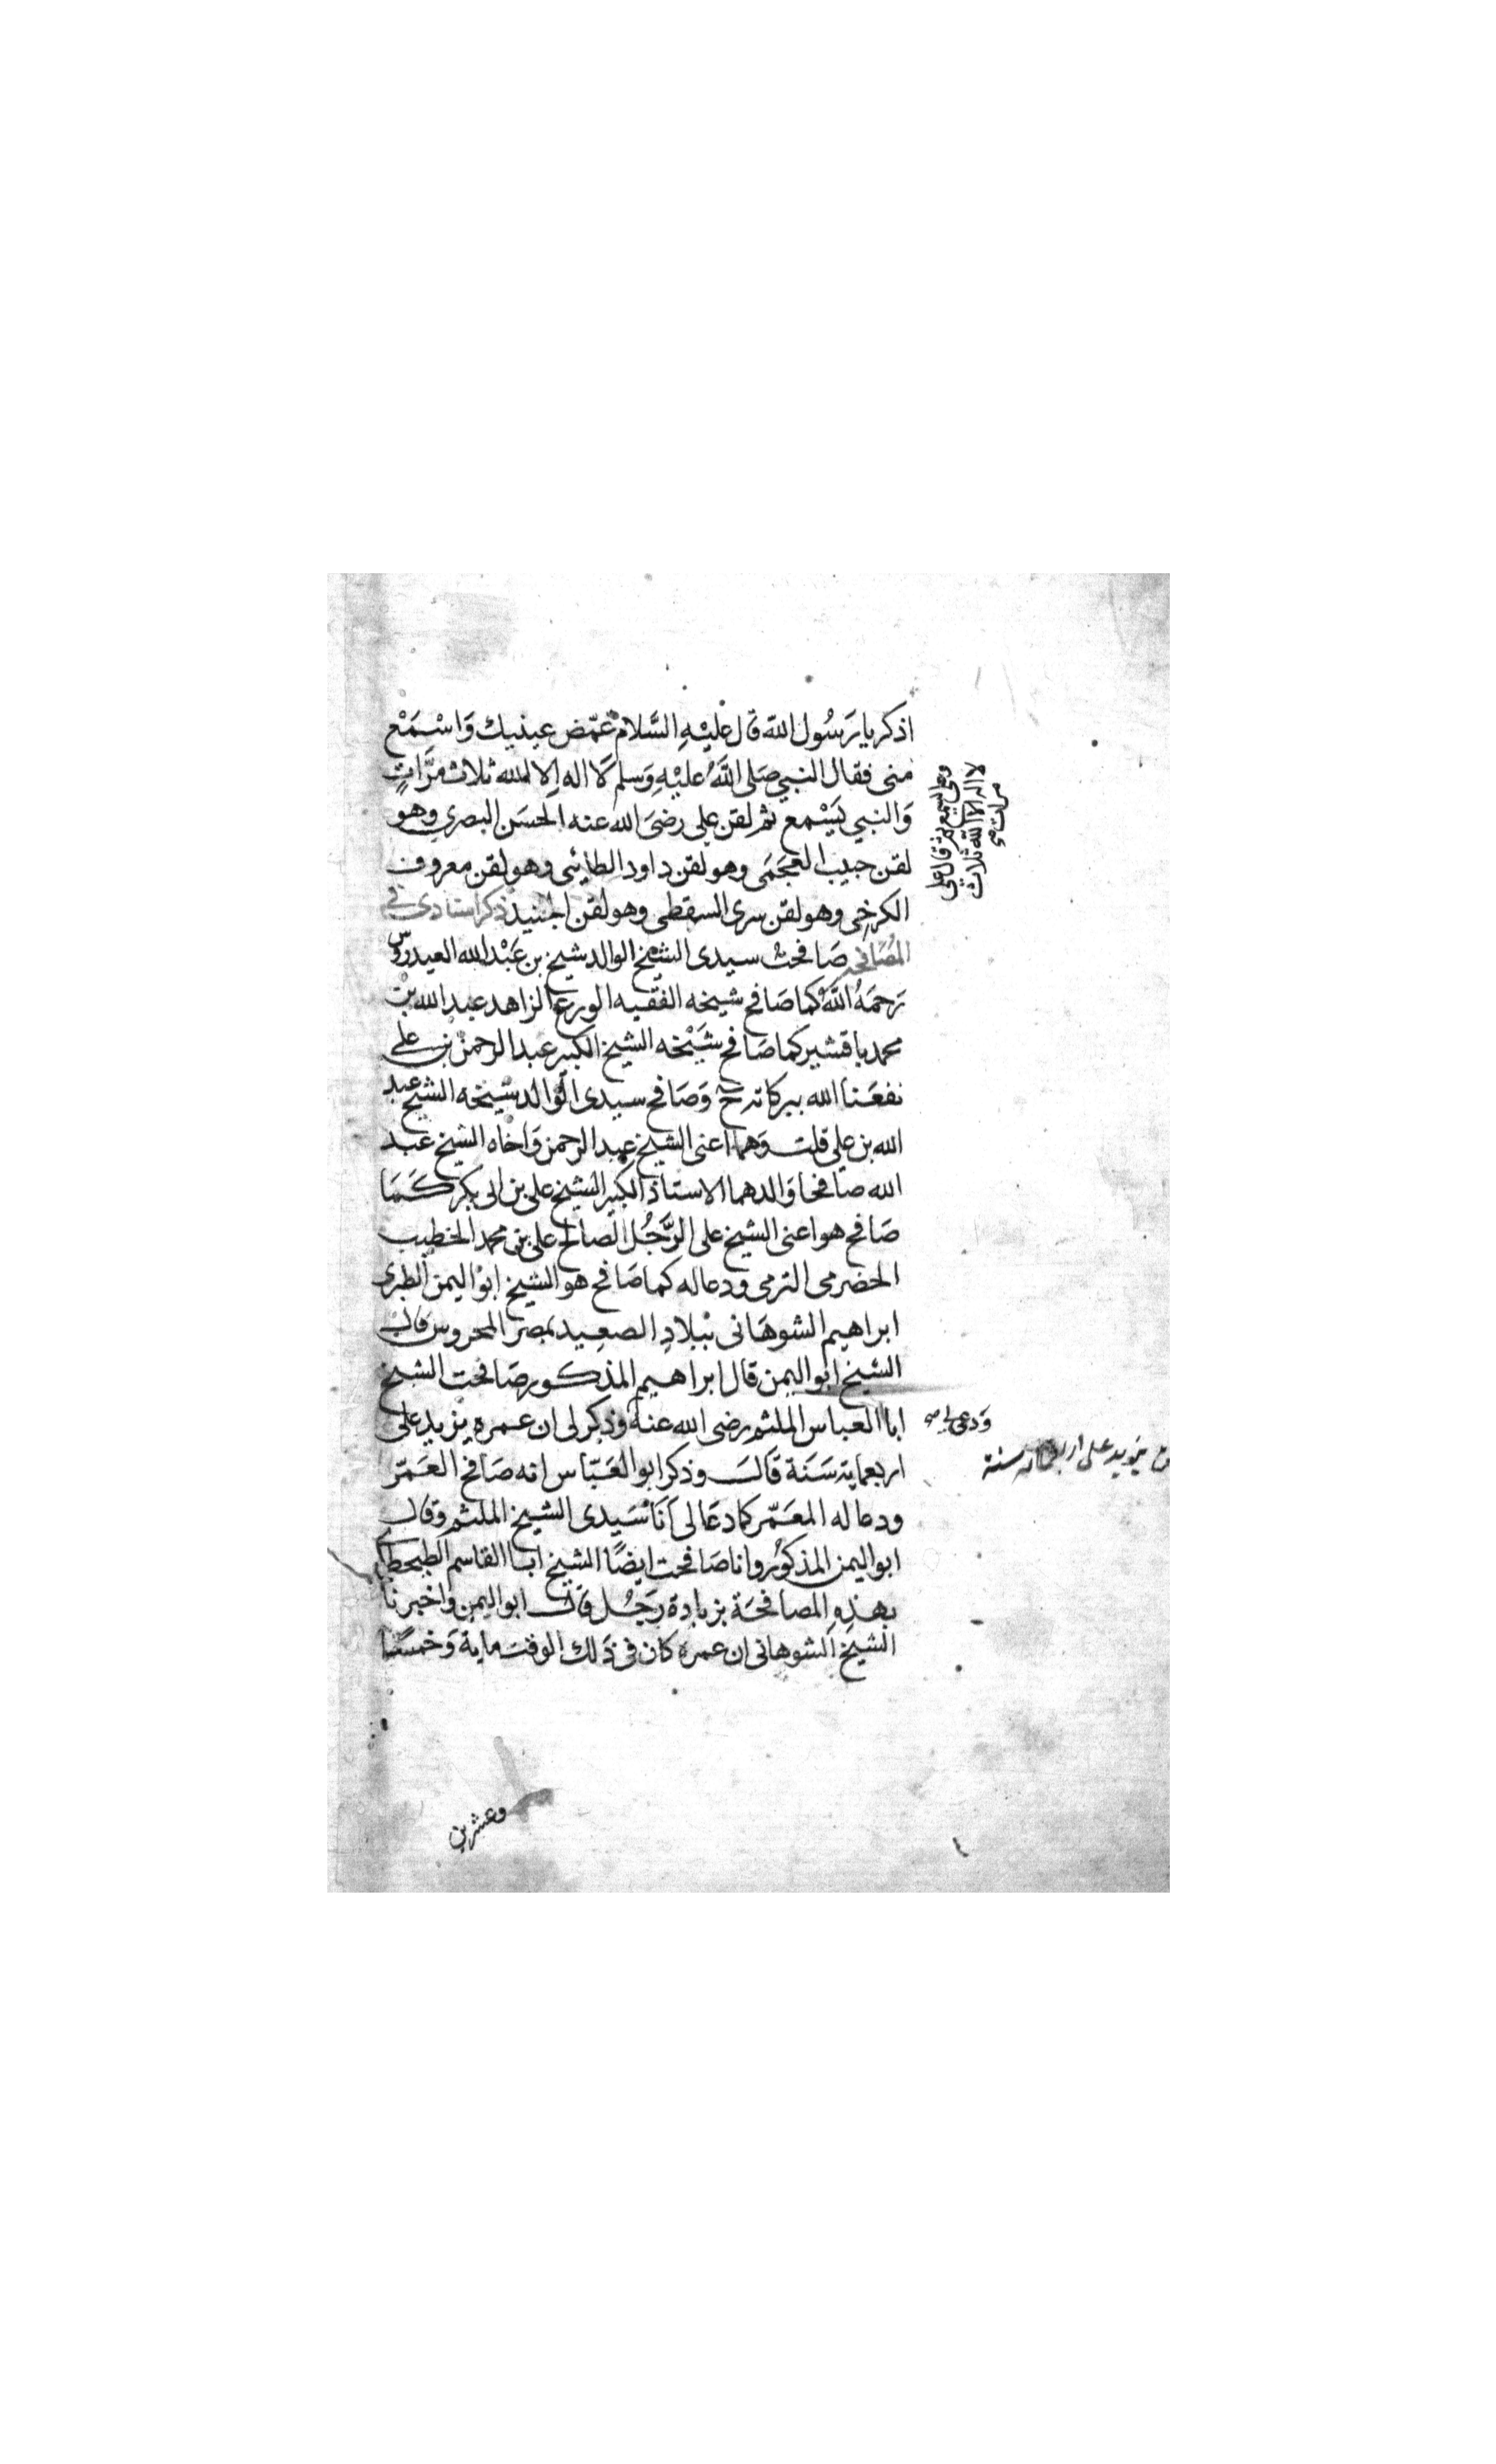 اذكر يا رَسُول الله قال عليْهِ السَّلام غمّض عينيك وَاسْمَعْ
منى فقال النبي صَلى اللهُ عليْهِ وَسلم لَا اله اِلا الله ثلاث مَرَّاتٍ
وَالنبي يَسْمع ثم لقن علي رضىَ الله عنه الحسَن البصري وهو
لقن حبيب العجَمَى وهو لقن داود الطائى وهو لقن معروف
الكرخِى وهو لقن سرى السقطى وهو لقن الجنيد ذكر اسنادى فى
المُصَافحه صَافحتُ سيدى الشيخ الوالد شيخ بن عَبْد الله العيدروس
رَحمَهُ اللهُ كما صَافح شيخه الفقيه الورع الزاهد عبد الله بن
محمد باقشير كما صَافح شَيْخه الشيخ الكبير عبد الرحمن بن على
نفعَنا الله ببركاته ح وَصَافح سيدى الوَالد شيخه الشيخ عبد
الله بن علي قلت وَهما اعنى الشيخ عبد الرحمن وَاخاه الشيخ عبد
الله صَافحا وَالدهما الاستاذ الكبير الشيخ على بن ابى بكر كَمَا
صَافح هو اعنى الشيخ على الرَّجُل الصالح على بن محمد الخطيب
الحضرمى الترمى ودعا له كما صَافح هو الشيخ ابوْ اليمن الطبرى
ابراهيم الشوهَانى ببلادِ الصعِيد بمصر المحروس قال
الشيخ ابو اليمن قال ابراهيم المذكور صَافحت الشيخ
ابا العباس الملثم رضى الله عنه وذكر لى ان عمره يزيد على
اربعماية سَنَة قَالَ وذكر ابو العَبّاس انه صَافح المعَمّر
ودعا له المعَمّر كما دعَا لى اَنَا سَيدى الشيخ الملثم وقال
ابو اليمن المذكوُر وانا صَافحت ايضًا الشيخ ابا القاسم
بهذِهِ المصافحَة بزيادة رَجُل قال ابو اليمن وَاخبرنا
الشيخ الشوهانى ان عمره كان فى ذَلك الوقت ماية وَخمسًا
وعشرين
وعلى يسمع ثم قال على
لا اله الا الله ثلاث
مرات صح
وَدعى لي صح
يزيد على اربعمائه سنة